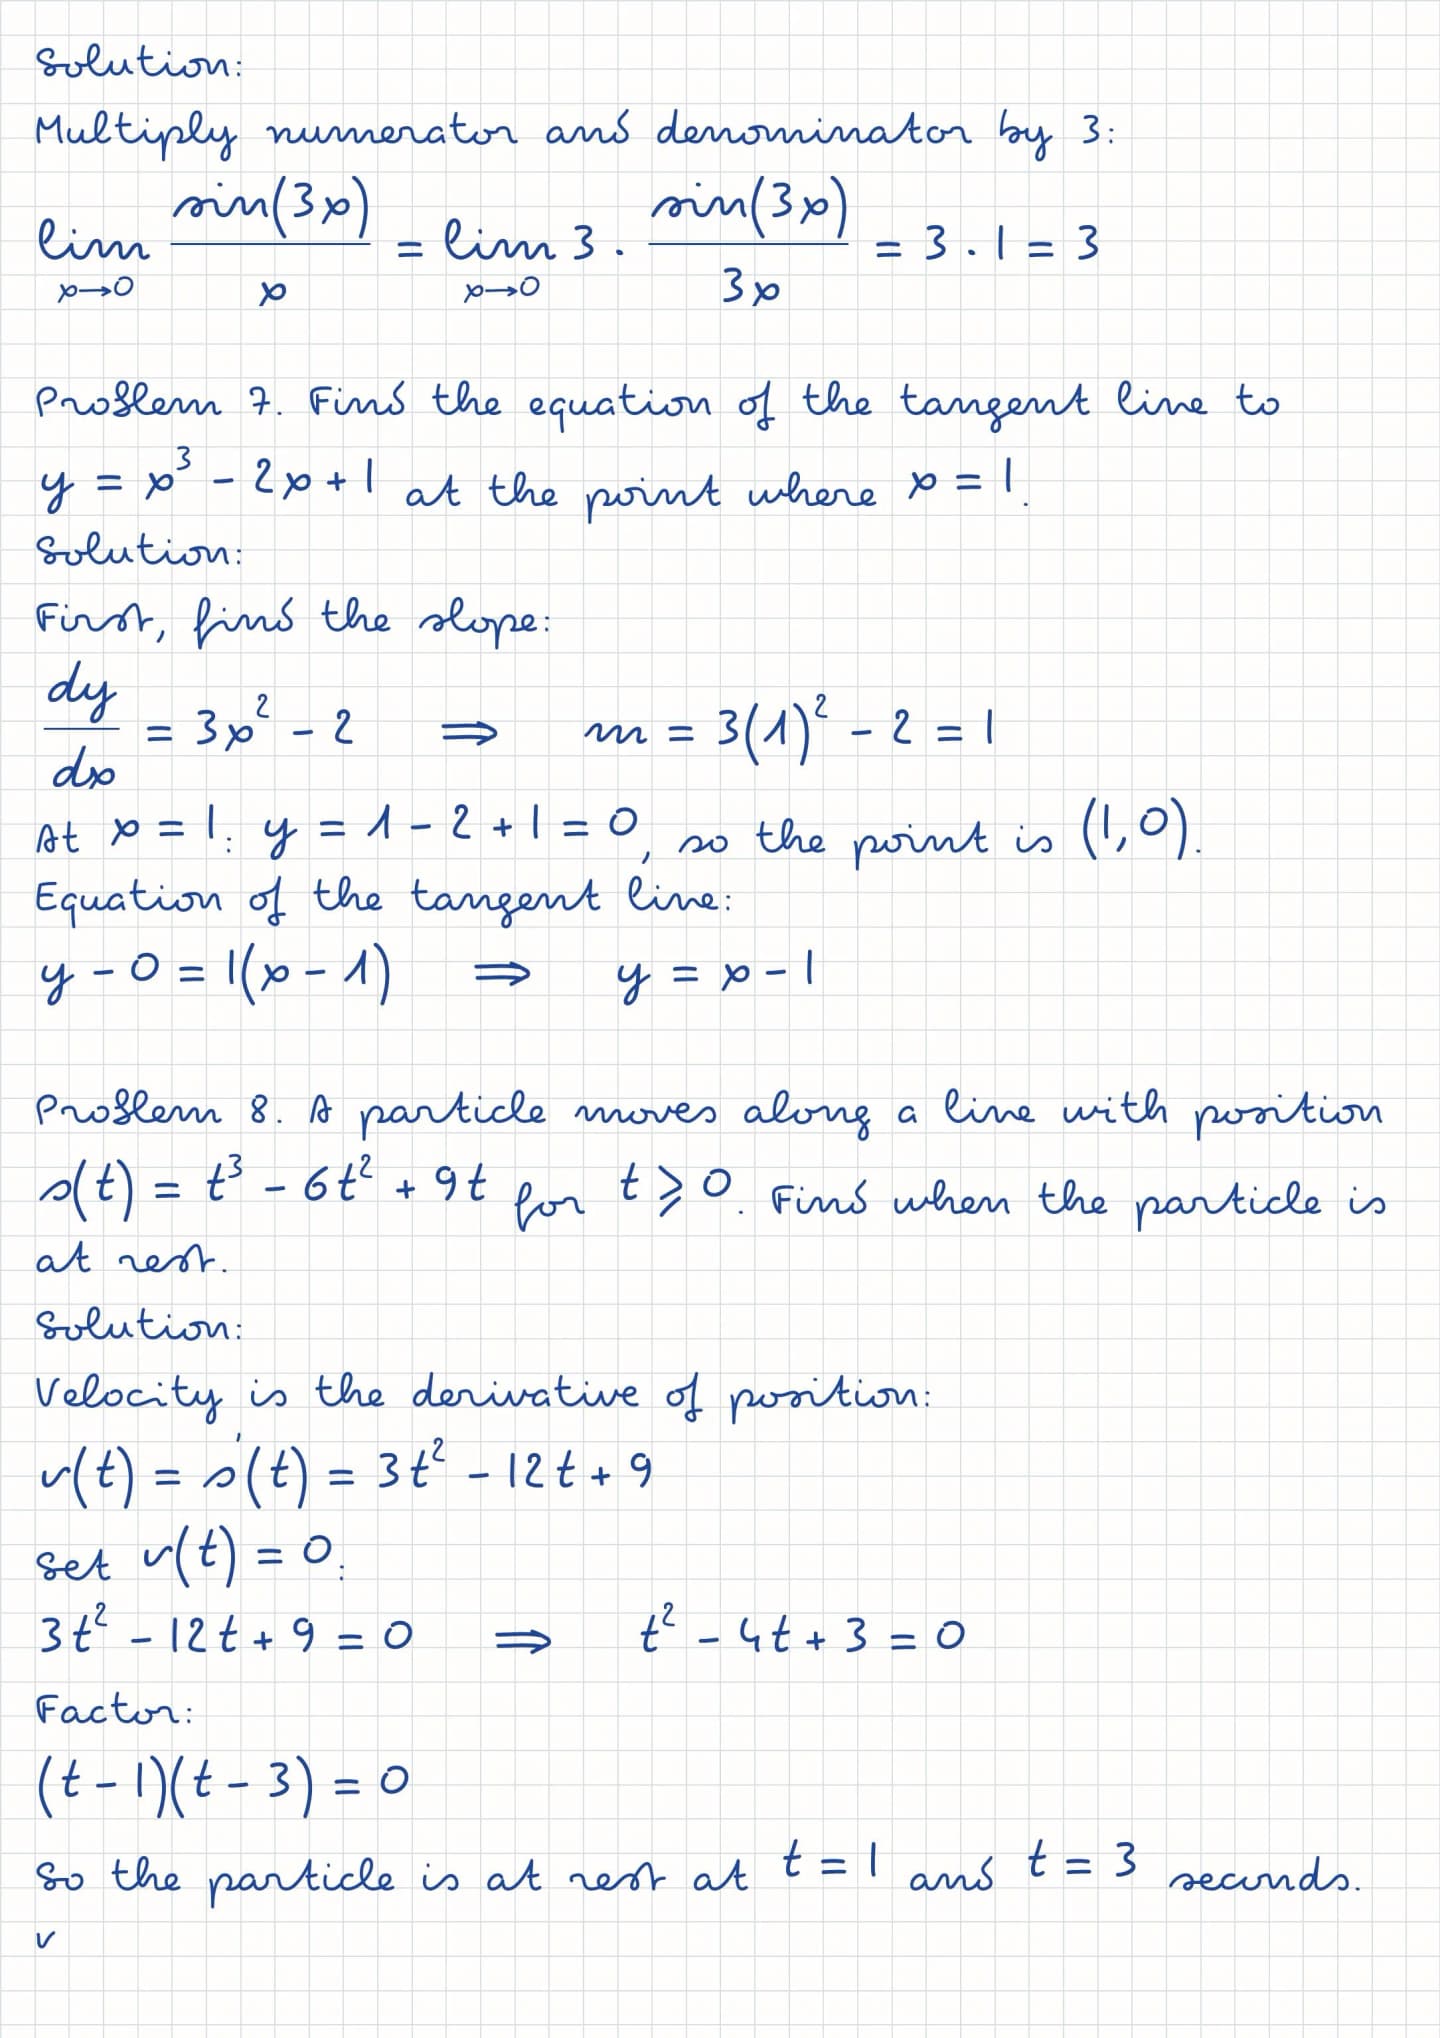 Solution:
Multiply numerator and denominator by 3:
lim x→0 sin(3x)/x = lim x→0 3 · sin(3x)/3x = 3 · 1 = 3
Problem 7. Find the equation of the tangent line to
y = x³ - 2x + 1 at the point where x = 1.
Solution:
First, find the slope:
dy/dx = 3x² - 2 ⟹ m = 3(1)² - 2 = 1
At x = 1: y = 1 - 2 + 1 = 0, so the point is (1, 0).
Equation of the tangent line:
y - 0 = 1(x - 1) ⟹ y = x - 1
Problem 8. A particle moves along a line with position
s(t) = t³ - 6t² + 9t for t ⩾ 0. Find when the particle is
at rest.
Solution:
Velocity is the derivative of position:
v(t) = s'(t) = 3t² - 12t + 9
Set v(t) = 0:
3t² - 12t + 9 = 0 ⟹ t² - 4t + 3 = 0
Factor:
(t - 1)(t - 3) = 0
So the particle is at rest at t = 1 and t = 3 seconds.
v